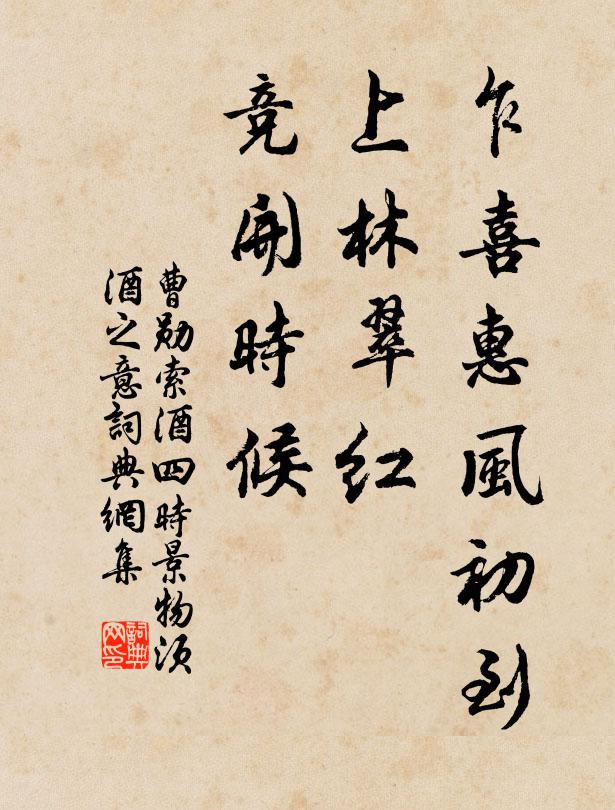 乍喜惠風初到
上林翠紅
競開時候
曹勛索酒四時景物須
酒之意詞典網集
詞典
网印